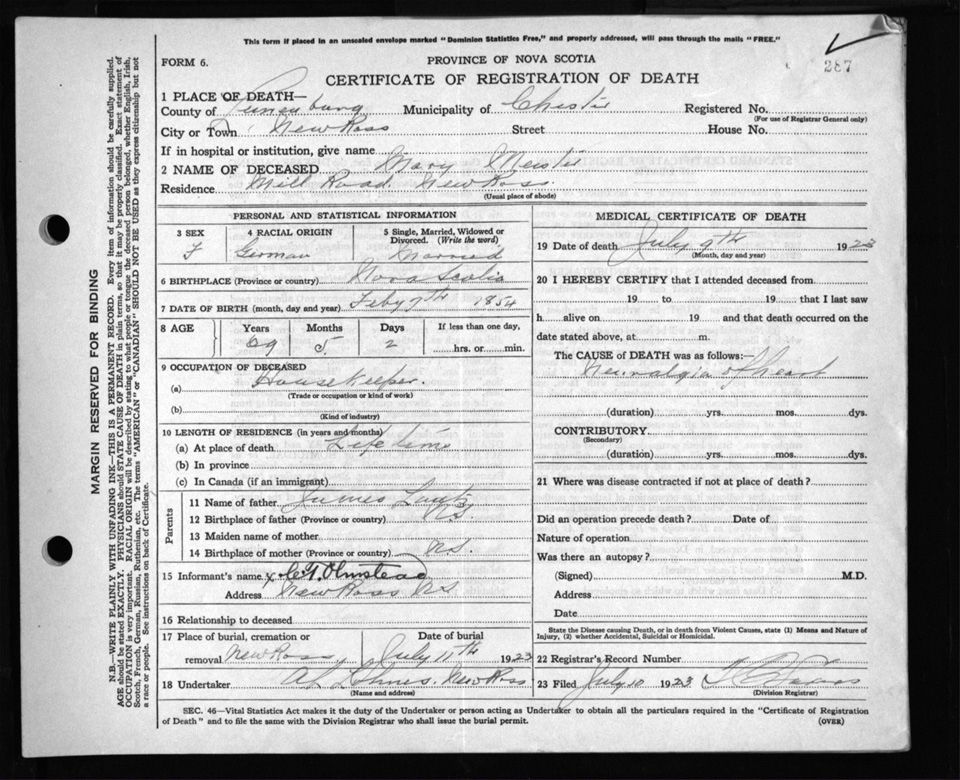 This form if placed in an unsealed envelope marked "Dominion Statistics Free," and properly addressed, will pass through the mails "FREE."
287
FORM 6.
PROVINCE OF NOVA SCOTIA
CERTIFICATE OF REGISTRATION OF DEATH
1 PLACE OF DEATH—
County of Lunenburg Municipality of Chester Registered No.
(For use of Registrar General only)
City or Town New Ross Street House No.
If in hospital or institution, give name
2 NAME OF DECEASED Mary
Residence Mill Road New Ross.
(Usual place of abode)
PERSONAL AND STATISTICAL INFORMATION
3 SEX 4 RACIAL ORIGIN 5 Single, Married, Widowed or Divorced. (Write the word)
F German Married
6 BIRTHPLACE (Province or country) Nova Scotia
7 DATE OF BIRTH (month, day and year) Feby 7th 1854
8 AGE Years Months Days If less than one day,
69 5 2 hrs. or min.
9 OCCUPATION OF DECEASED
(a) Housekeeper.
(Trade or occupation or kind of work)
(b)
(Kind of industry)
10 LENGTH OF RESIDENCE (in years and months)
(a) At place of death Life time
(b) In province
(c) In Canada (if an immigrant)
Parents
11 Name of father James Lantz
12 Birthplace of father (Province or country) N.S.
13 Maiden name of mother
14 Birthplace of mother (Province or country) N.S.
15 Informant's name Olmstead
Address New Ross N.S.
16 Relationship to deceased
17 Place of burial, cremation or removal New Ross Date of burial July 11th 1923
18 Undertaker New Ross
(Name and address)
MEDICAL CERTIFICATE OF DEATH
19 Date of death July 9th 1923
(Month, day and year)
20 I HEREBY CERTIFY that I attended deceased from
19 to 19 that I last saw
h alive on 19 and that death occurred on
date stated above, at m.
The CAUSE OF DEATH was as follows:—
Neuralgia of heart
(duration) yrs. mos. dys.
CONTRIBUTORY
(Secondary)
(duration) yrs. mos. dys.
21 Where was disease contracted if not at place of death?
Did an operation precede death? Date of
Nature of operation
Was there an autopsy?
(Signed) M.D.
Address
Date
State the Disease causing Death, or in death from Violent Causes, state (1) Means and Nature of
Injury, (2) whether Accidental, Suicidal or Homicidal.
22 Registrar's Record Number
23 Filed July 10 1923
(Division Registrar)
SEC. 46—Vital Statistics Act makes it the duty of the Undertaker or person acting as Undertaker to obtain all the particulars required in the "Certificate of Registration
of Death" and to file the same with the Division Registrar who shall issue the burial permit. (OVER)
MARGIN RESERVED FOR BINDING
N.B.—WRITE PLAINLY WITH UNFADING INK—THIS IS A PERMANENT RECORD. Every item of information should be carefully supplied.
AGE should be stated EXACTLY. PHYSICIANS should STATE CAUSE OF DEATH in plain terms, so that it may be properly classified. Exact statement of
OCCUPATION is very important. RACIAL ORIGIN will be described by stating to what people or tongue the deceased person belonged, whether English, Irish,
Scotch, French, German, Russian, Ruthenian, etc. The terms "AMERICAN" or "CANADIAN" SHOULD NOT BE USED as they express citizenship but not
a race or people. See instructions on back of Certificate.